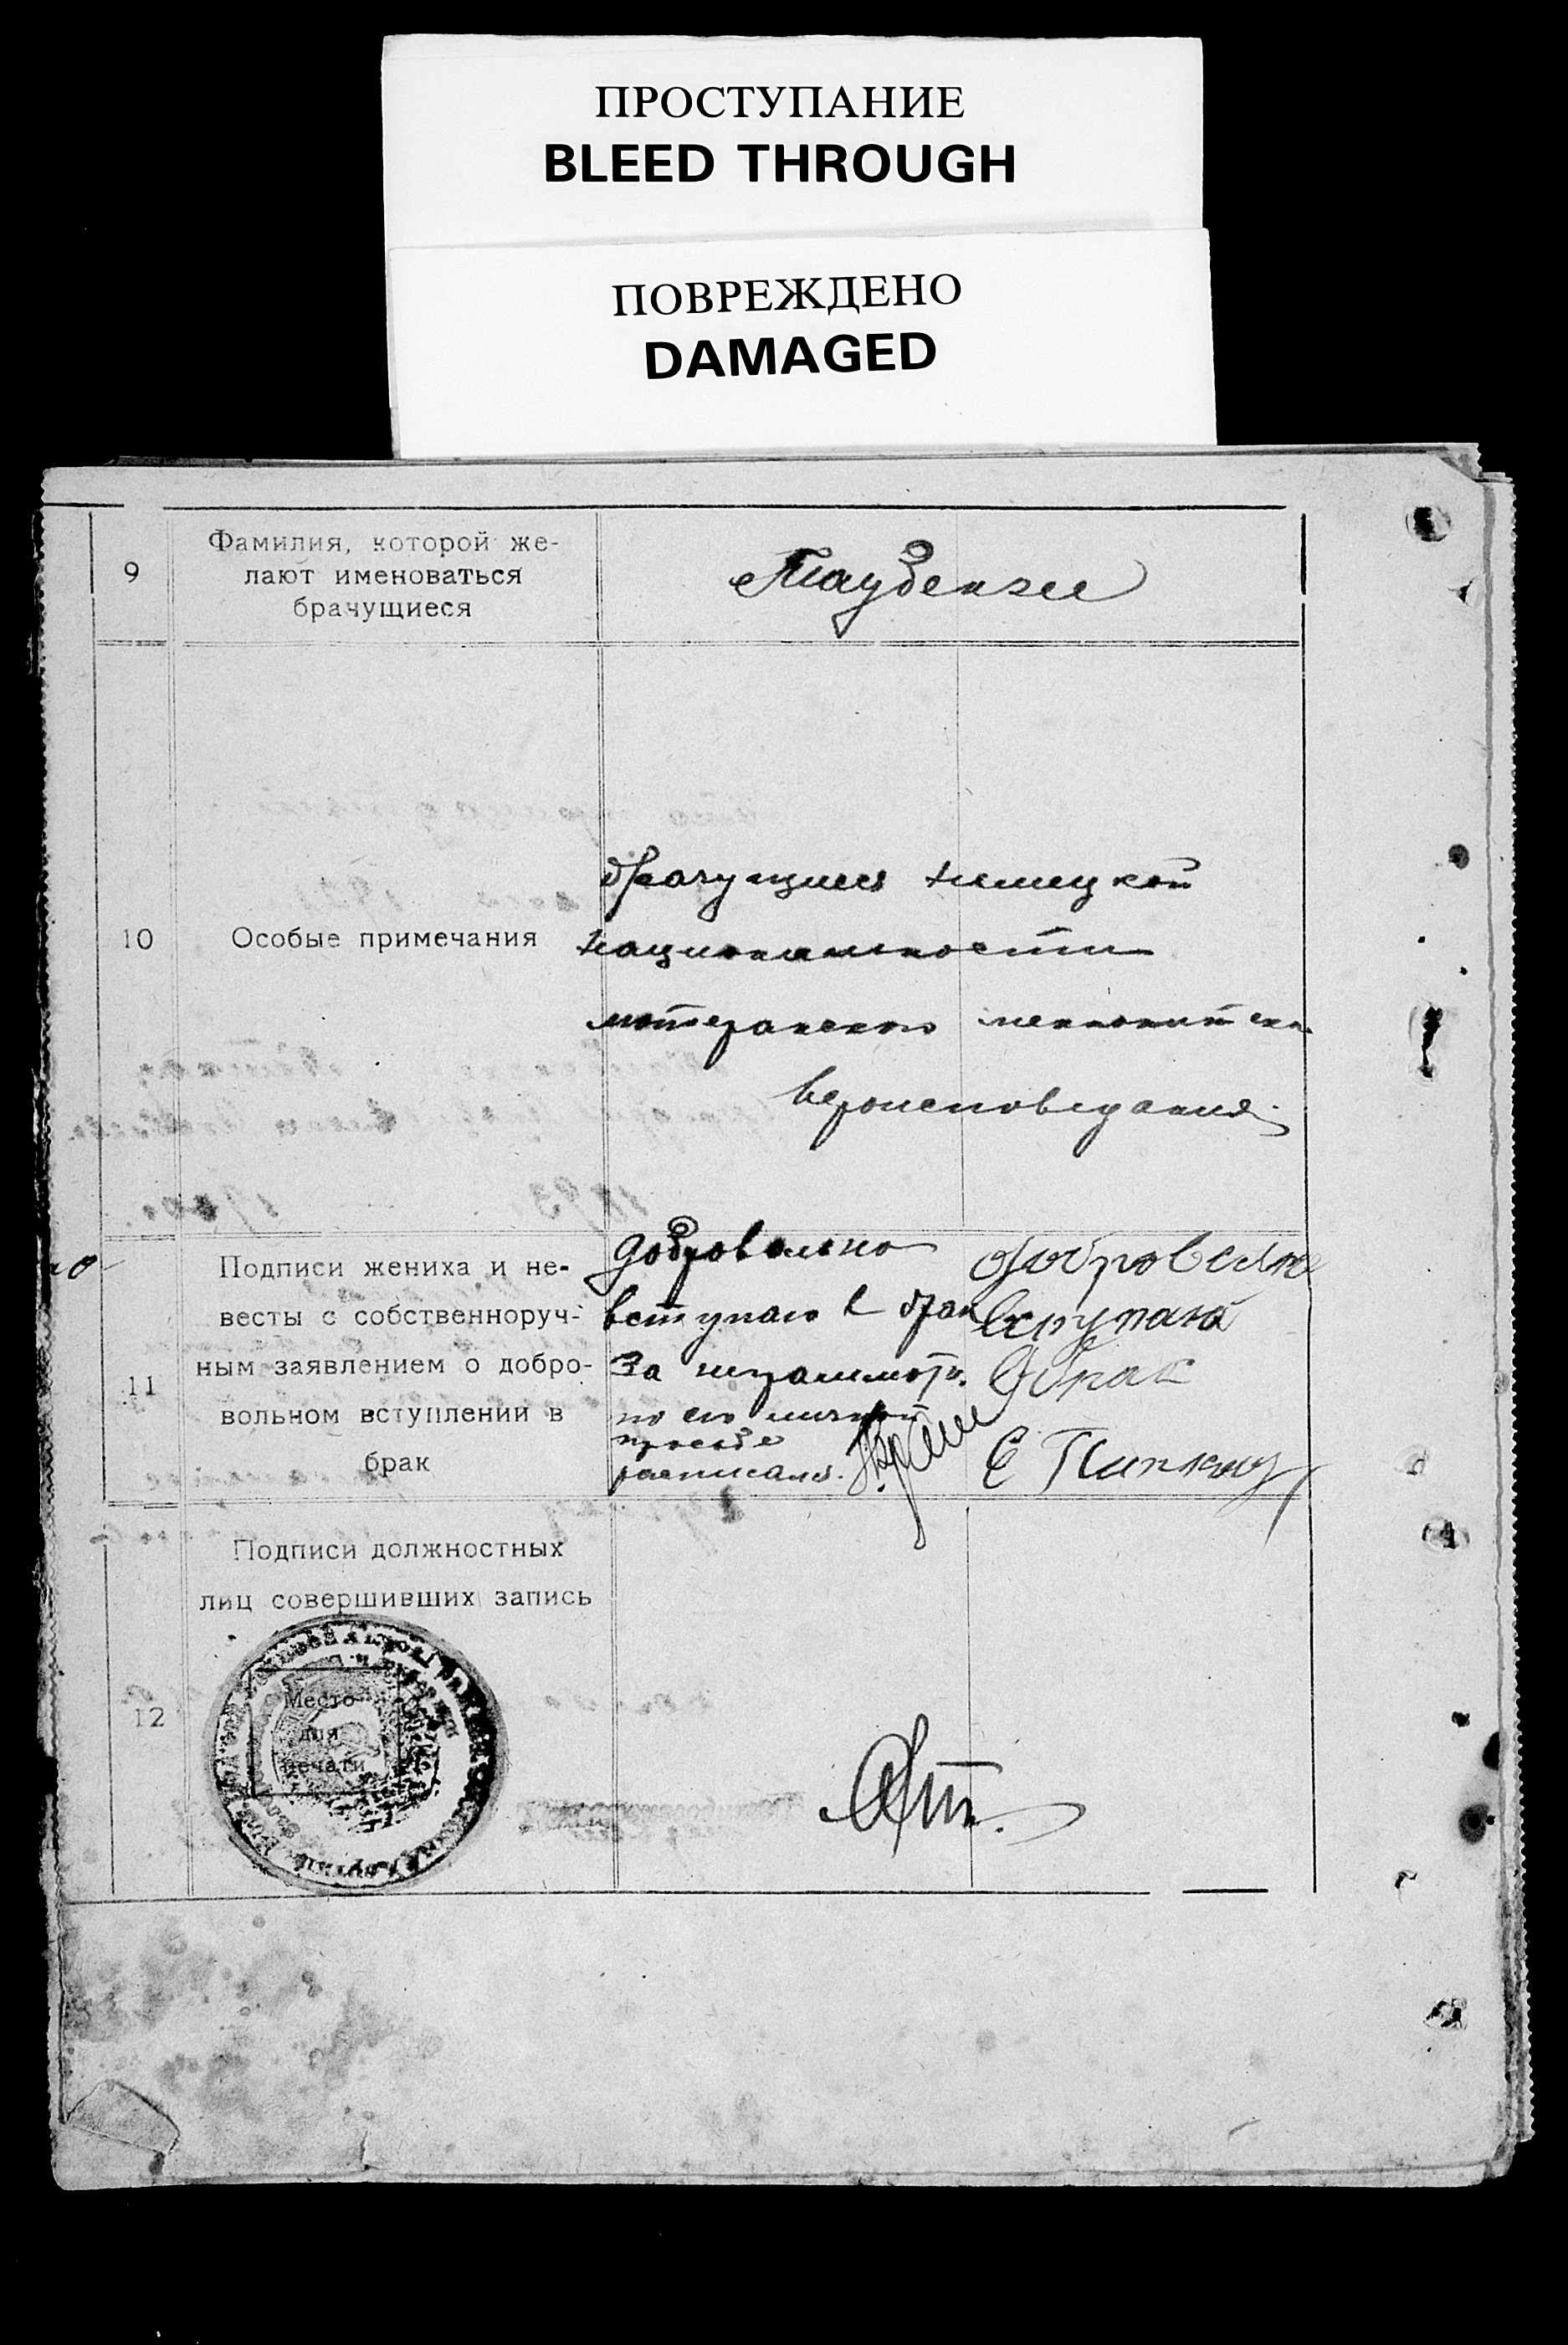 ПРОСТУПАНИЕ
BLEED THROUGH
ПОВРЕЖДЕНО
DAMAGED
9
Фамилия, которой же-
лают именоваться
брачущиеся
Таубензее
10
Особые примечания
брачущиеся немецкой
национальности
лютеранского менонитск.
вероисповедания.
11
Подписи жениха и не-
весты с собственноруч-
ным заявлением о добро-
вольном вступлении в
брак
Добровольно
вступаю в брак
За неграмотн.
по его личной
просьбе
расписался.
добровольно
вступаю
в брак
Е
12
Подписи должностных
лиц совершивших запись
Место
для
печати